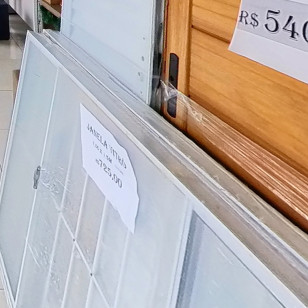 R$ 540
JANELA VITRÔ
R$ 725,00